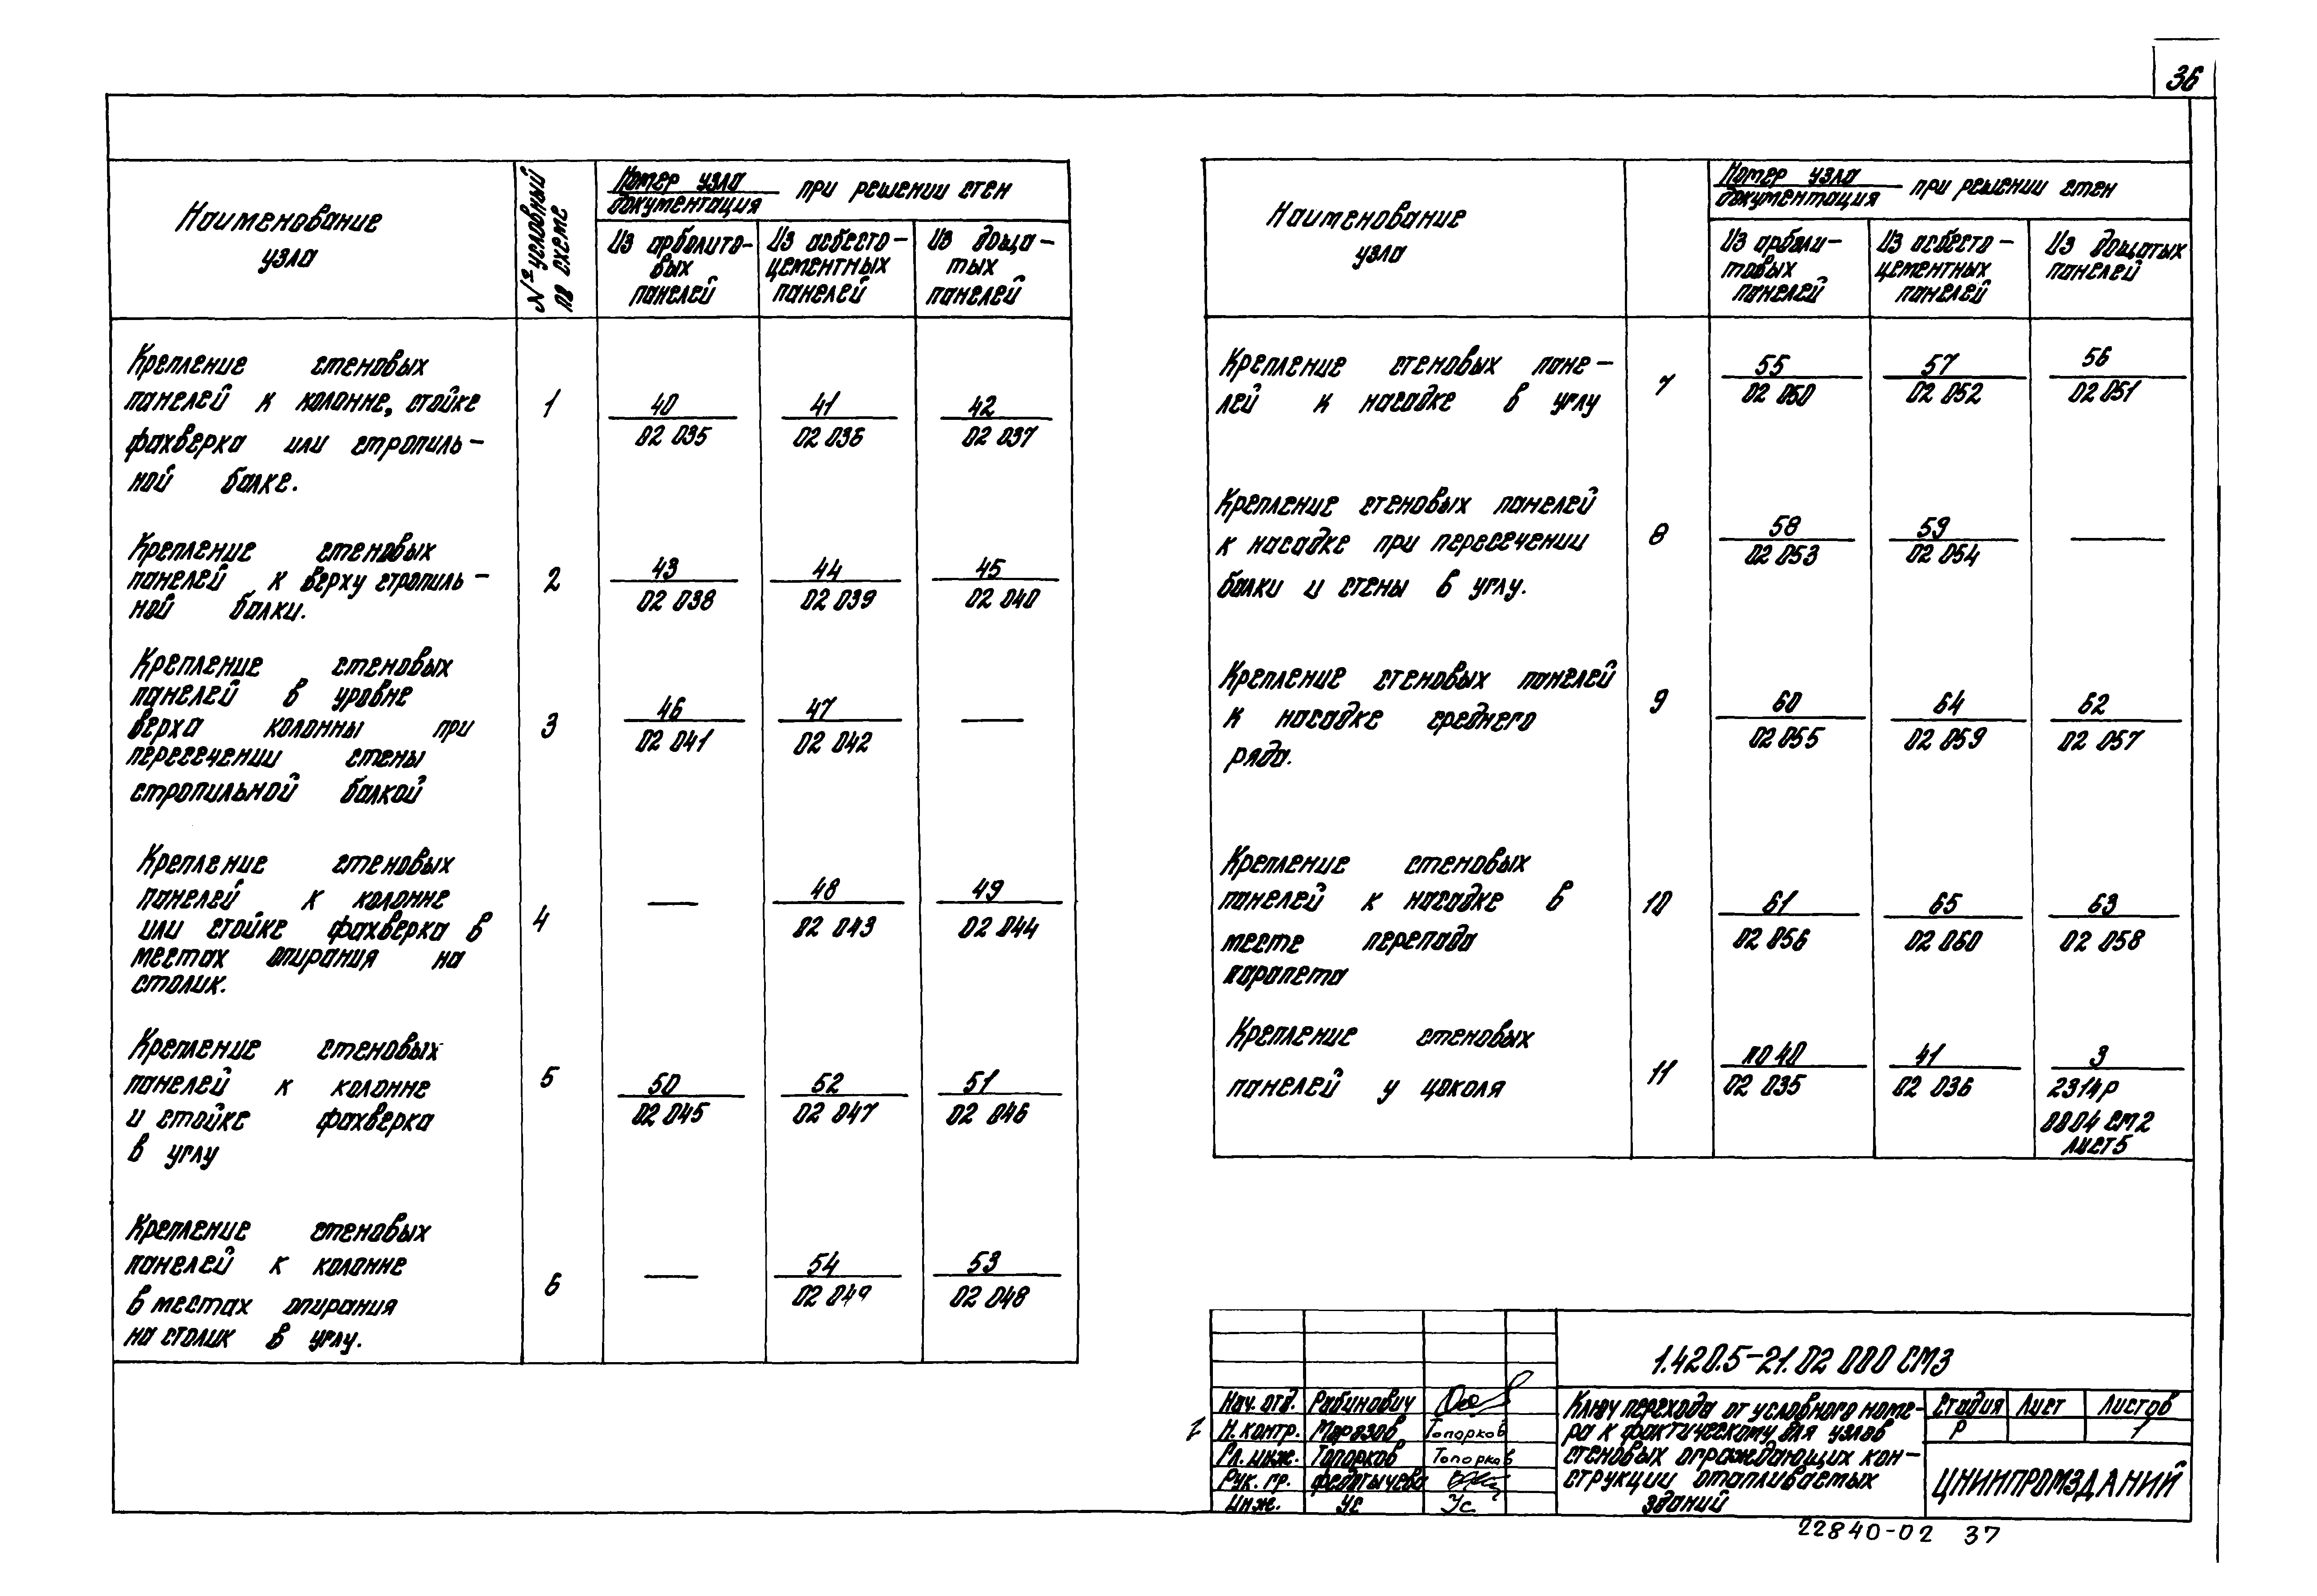 36
Наименование
узла
№ условный
по схеме
Номер узла
документация
при решении стен
Из арболито-
вых
панелей
Из асбесто-
цементных
панелей
Из доща-
тых
панелей
Крепление стеновых
панелей к колонне, стойке
фахверка или стропиль-
ной балке.
1
40
02 035
41
02 036
42
02 037
Крепление стеновых
панелей к верху стропиль-
ной балки.
2
43
02 038
44
02 039
45
02 040
Крепление стеновых
панелей в уровне
верха колонны при
пересечении стены
стропильной балкой
3
46
02 041
47
02 042
—
Крепление стеновых
панелей к колонне
или стойке фахверка в
местах опирания на
столик.
4
—
48
02 043
49
02 044
Крепление стеновых
панелей к колонне
и стойке фахверка
в углу
5
50
02 045
52
02 047
51
02 046
Крепление стеновых
панелей к колонне
в местах опирания
на столик в углу.
6
—
54
02 049
53
02 048
Наименование
узла
Номер узла
документация
при решении стен
Из арболи-
товых
панелей
Из асбесто-
цементных
панелей
Из дощатых
панелей
Крепление стеновых пане-
лей к насадке в углу
7
55
02 050
57
02 052
56
02 051
Крепление стеновых панелей
к насадке при пересечении
балки и стены в углу.
8
58
02 053
59
02 054
—
Крепление стеновых панелей
к насадке среднего
ряда.
9
60
02 055
64
02 059
62
02 057
Крепление стеновых
панелей к насадке в
месте перепада
парапета
10
61
02 056
65
02 060
63
02 058
Крепление стеновых
панелей у цоколя
11
по 40
02 035
41
02 036
3
2314р
0004 СМ2
лист 5
1.420.5-21.02 000 СМ3
Нач. отд. Рабинович
Н. контр. Маразов Топорков
Гл. инж. Топорков Топорков
Рук. гр. Федотычева
Инж. Ус Ус
Ключ перехода от условного номе-
ра к фактическому для узлов
стеновых ограждающих кон-
струкции отапливаемых
зданий
Стадия Лист Листов
Р 1
ЦНИИПРОМЗДАНИЙ
22840-02 37